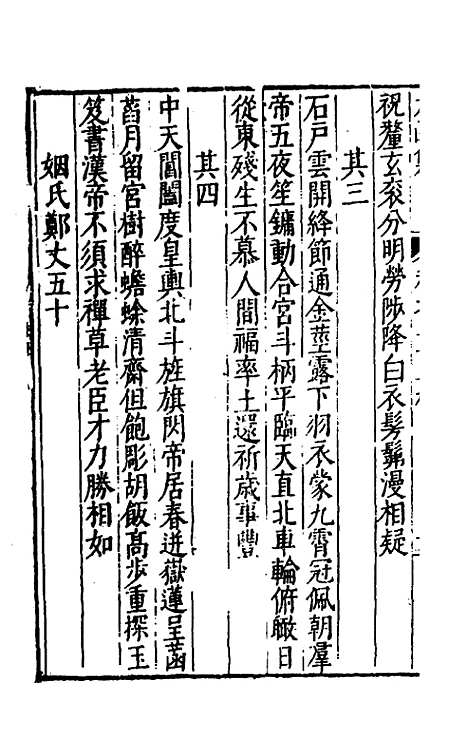 祝釐玄衮分明勞陟降白衣髣髴漫相疑
其三
石戸雲開絳節通金莖露下羽衣蒙九霄冠佩朝羣
帝五夜笙鏞動合宮斗柄平臨天直北車輪俯瞰日
從東殘生不慕人間福率土還祈歲事豐
其四
中天閶闔度皇輿北斗旌旗閃帝居春迸嶽蓮呈菡
萏月留宮樹醉蟾蜍清齋但飽彫胡飯高步重探玉
笈書漢帝不須求禪草老臣才力勝相如
姻氏鄭丈五十